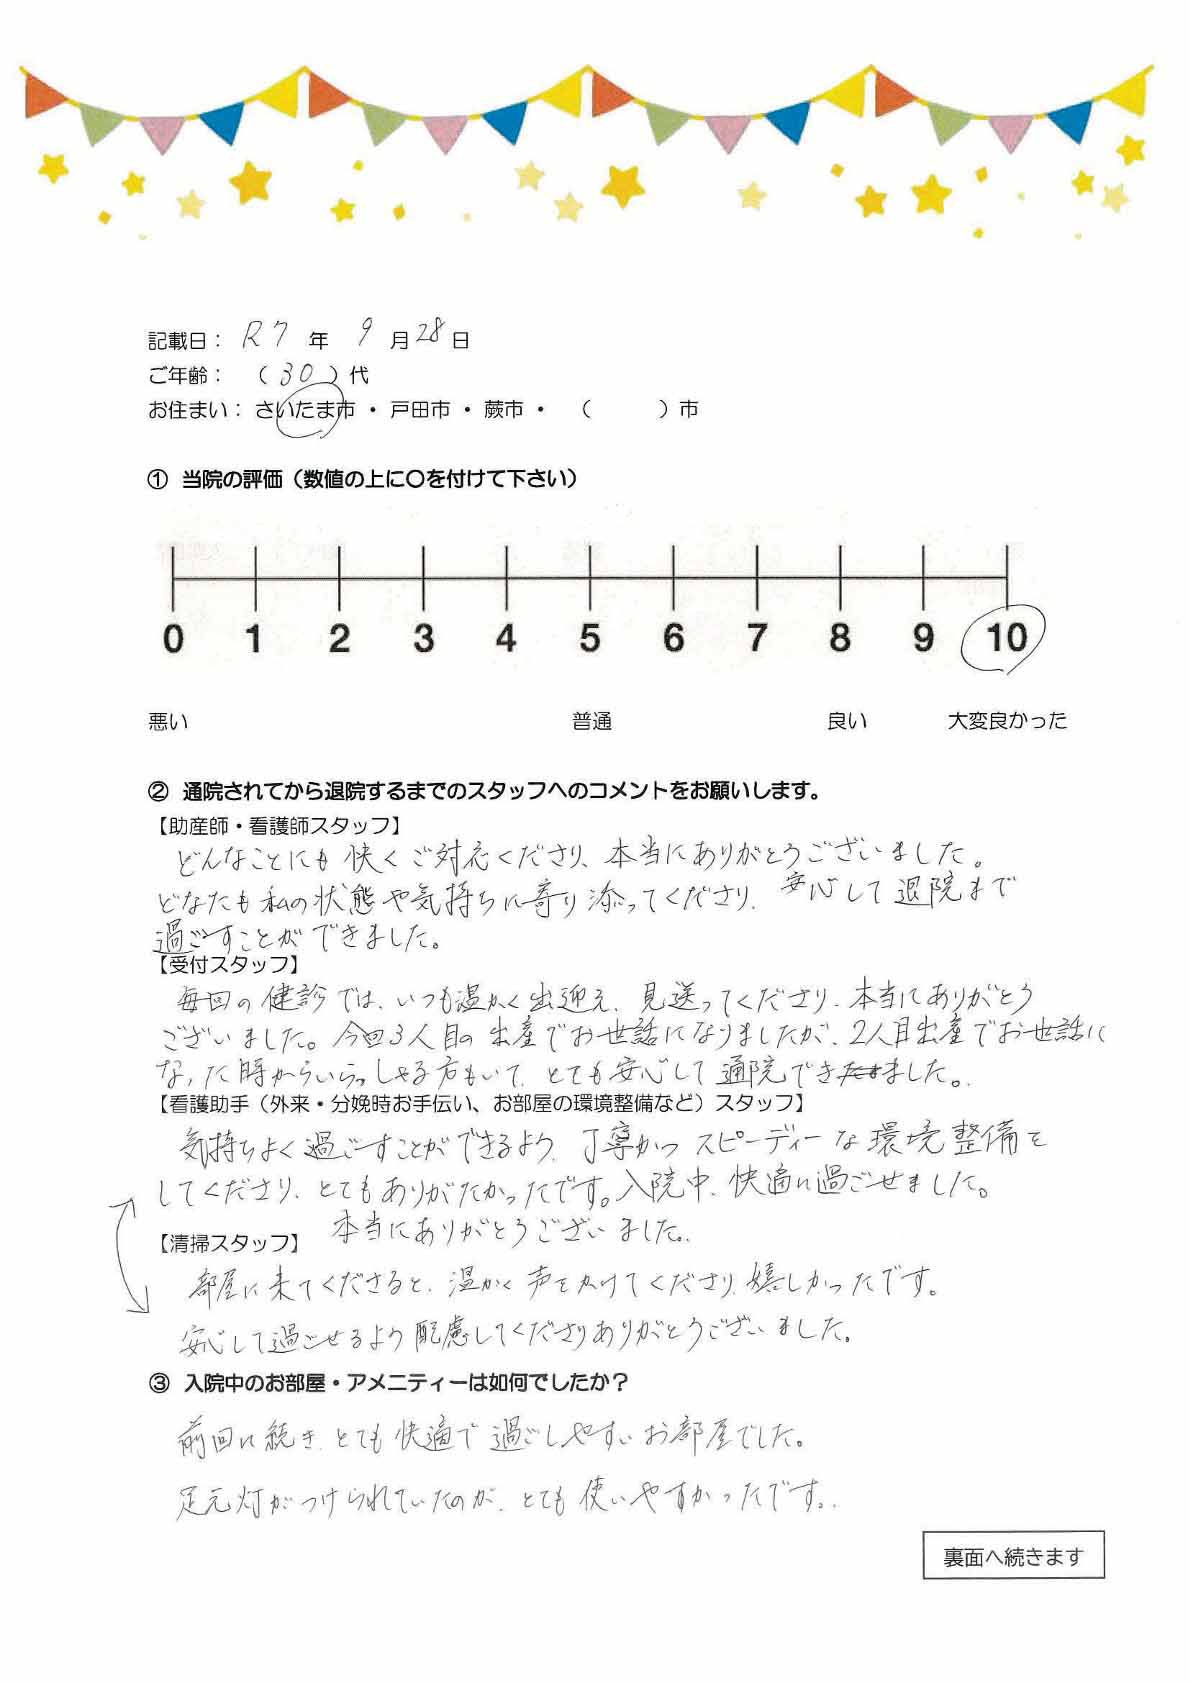 記載日： R7 年 9 月 28 日
ご年齢： （ 30 ）代
お住まい： さいたま市 ・ 戸田市 ・ 蕨市 ・ （　　　）市
① 当院の評価（数値の上に〇を付けて下さい）
0 1 2 3 4 5 6 7 8 9 10
悪い 普通 良い 大変良かった
② 通院されてから退院するまでのスタッフへのコメントをお願いします。
【助産師・看護師スタッフ】
どんなことにも快くご対応くださり、本当にありがとうございました。
どなたも私の状態や気持ちに寄り添ってくださり、安心して退院まで
過ごすことができました。
【受付スタッフ】
毎回の健診では、いつも温かく出迎え、見送ってくださり、本当にありがとう
ございました。今回3人目の出産でお世話になりましたが、2人目出産でお世話に
なった時からいらっしゃる方もいて、とても安心して通院できました。
【看護助手（外来・分娩時お手伝い、お部屋の環境整備など）スタッフ】
気持ちよく過ごすことができるよう、丁寧かつスピーディーな環境整備を
してくださり、とてもありがたかったです。入院中、快適に過ごせました。
本当にありがとうございました。
【清掃スタッフ】
部屋に来てくださると、温かく声をかけてくださり、嬉しかったです。
安心して過ごせるよう配慮してくださりありがとうございました。
③ 入院中のお部屋・アメニティーは如何でしたか？
前回に続き、とても快適で過ごしやすいお部屋でした。
足元灯がつけられていたのが、とても使いやすかったです。
裏面へ続きます